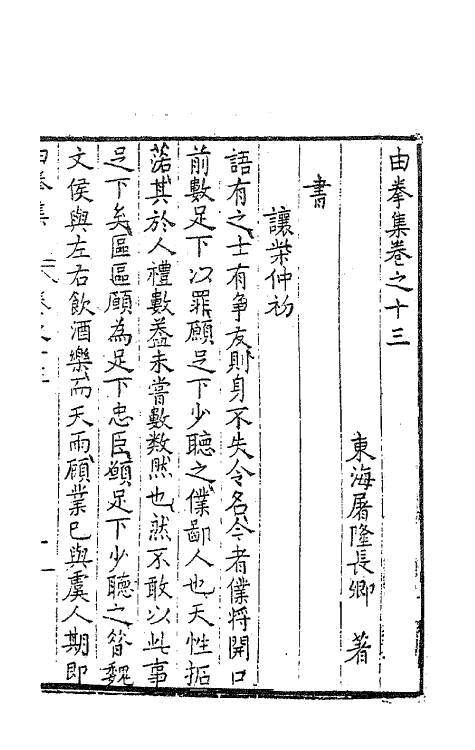 由拳集卷之十三
東海屠隆長卿 著
書
讓柴仲初
語有之士有争友則身不失令名今者僕将開口
前數足下以罪願足下少聽之僕鄙人也天性拓
落其於人禮數葢未嘗數數然也然不敢以此事
足下矣區區願為足下忠臣願足下少聽之昔魏
文侯與左右飲酒樂而天雨顧業已與虞人期即
由拳集 卷之十三 一